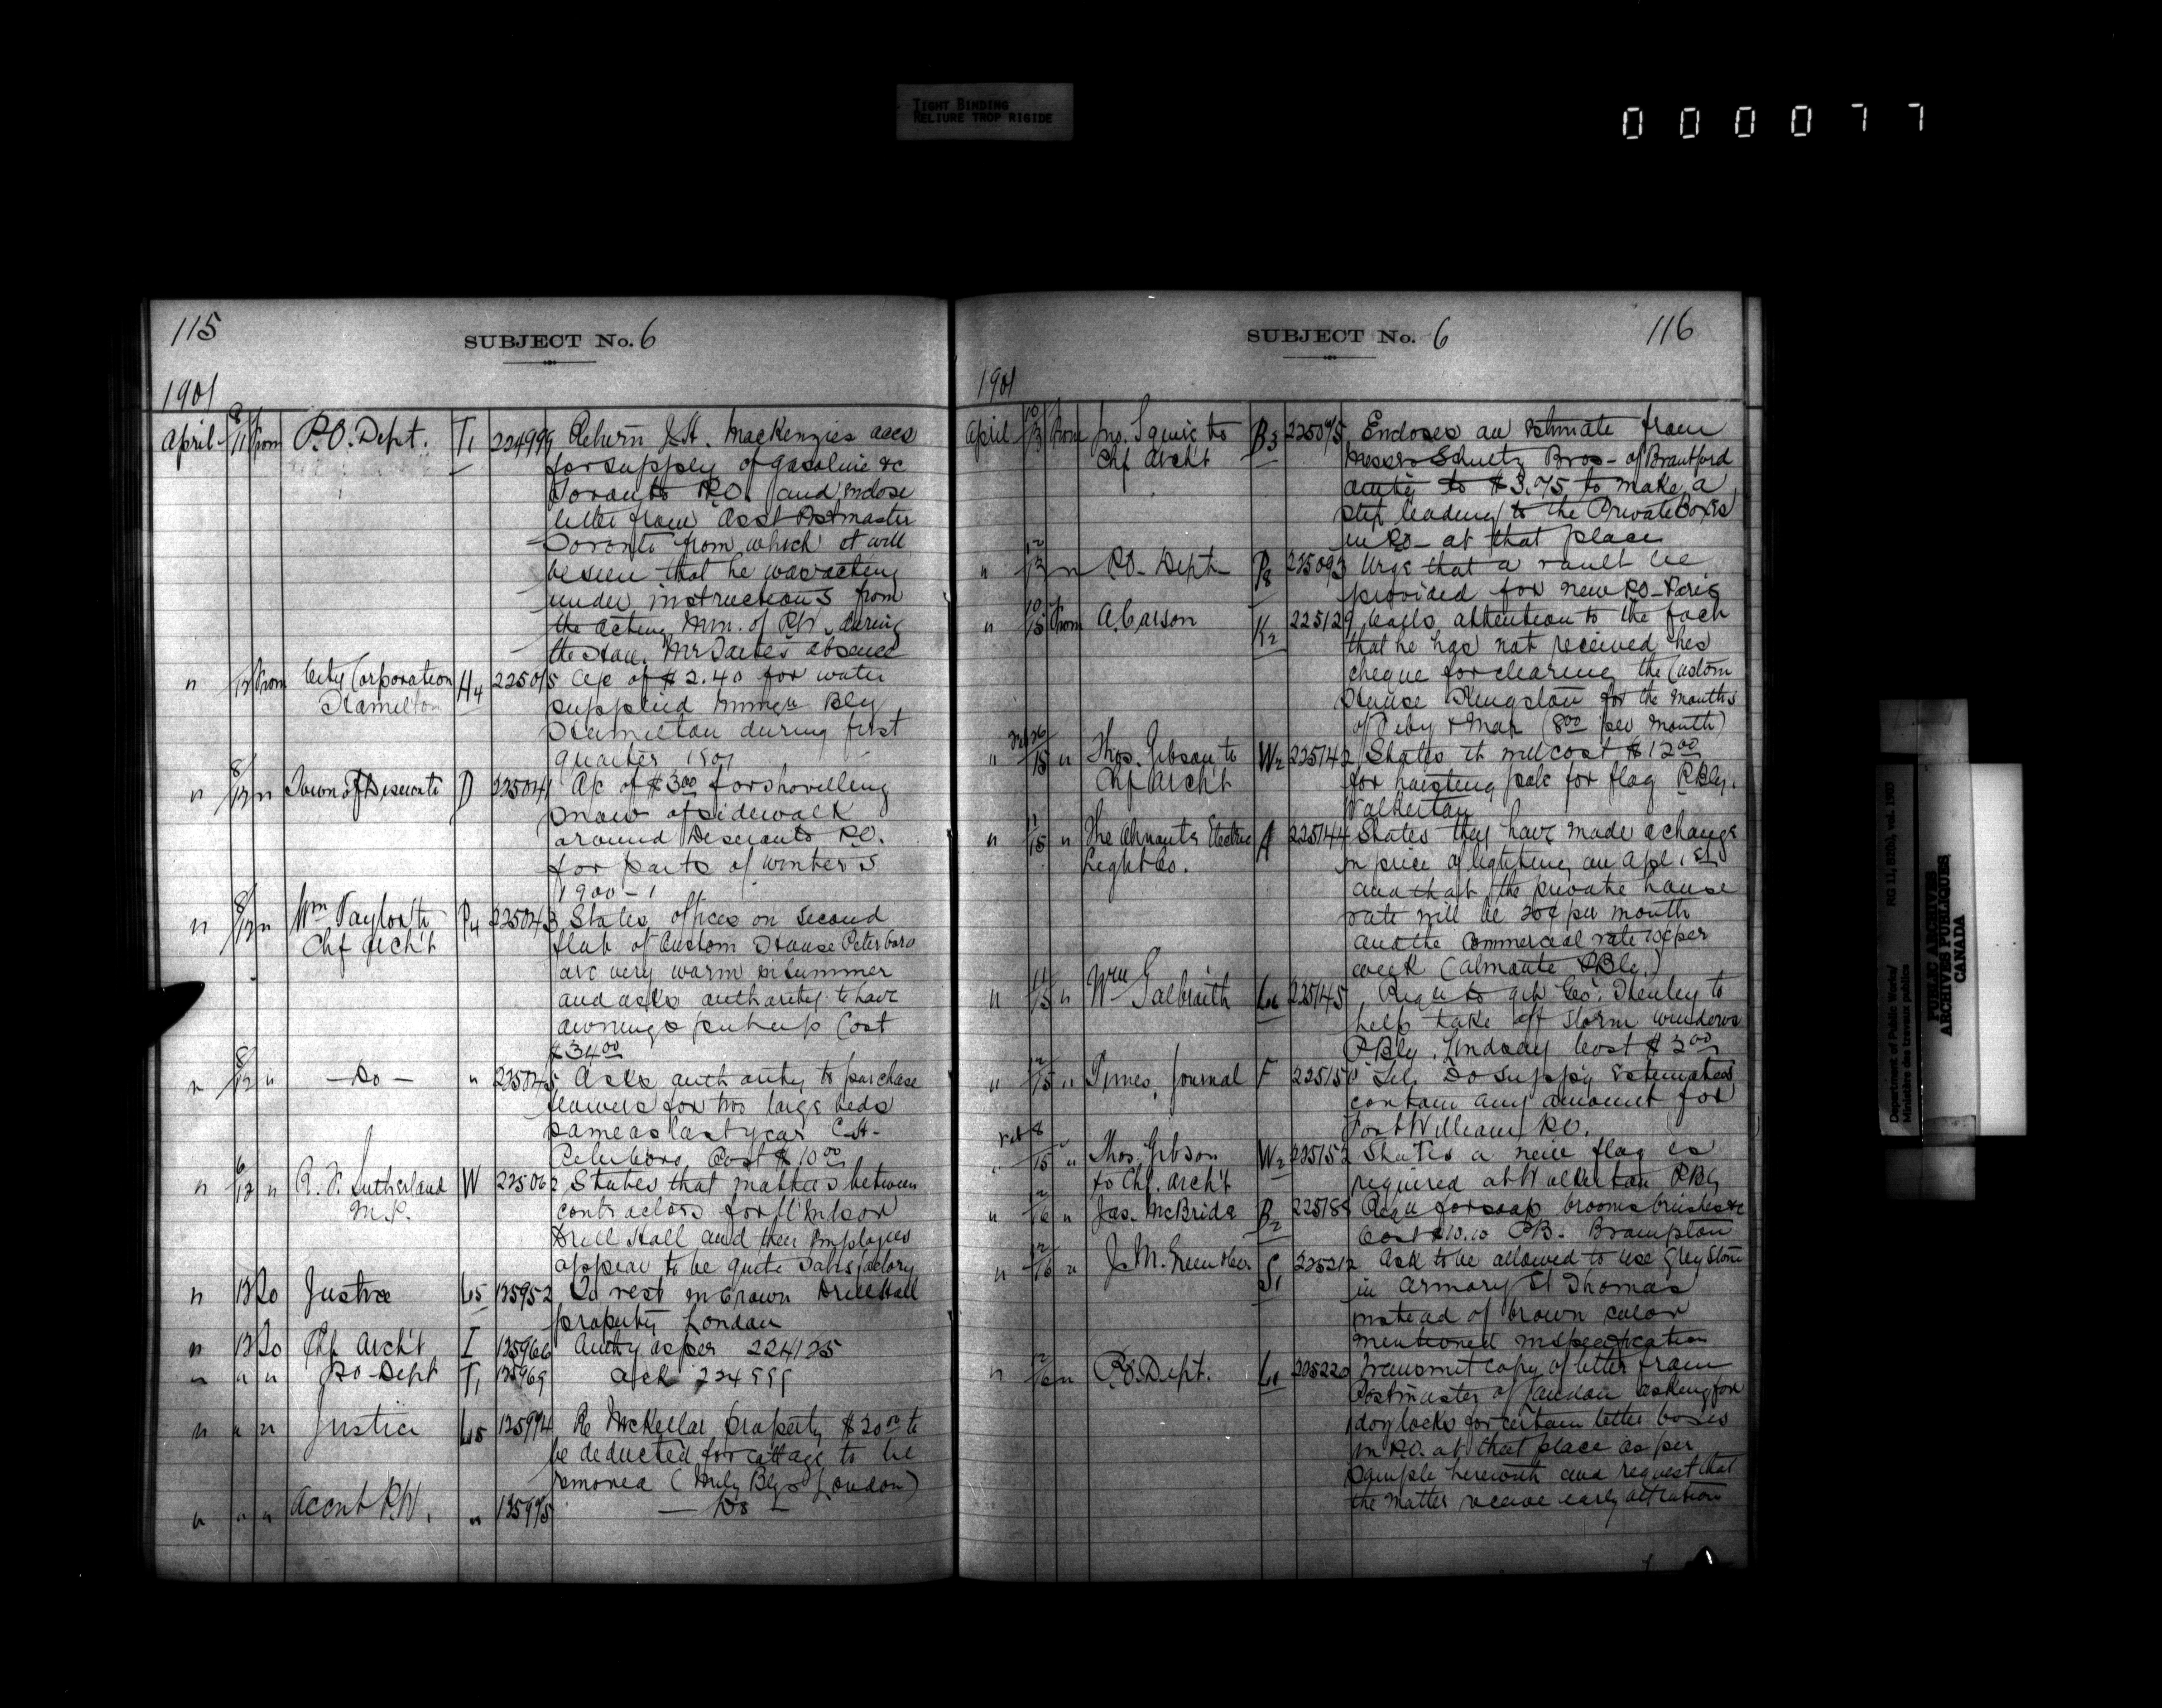 TIGHT BINDING
RELIURE TROP RIGIDE
000077
115
SUBJECT No. 6
1901
April 9/11 From P.O. Dept. T1 224999 Return J.H. Mackenzies accs
for supply of gasoline &c
Toronto P.O. and enclose
letter from Asst Postmaster
Toronto from which it will
be seen that he was acting
under instructions from
the acting Min. of P.W. during
the Hon. Mr Tarte's absence
" 12 From City Corporation H4 225015 A/c of $2.40 for water
Hamilton supplied Bly
Hamilton during first
quarter 1901
" 8/12 " Town of Deseronto D 225041 A/c of $3.00 for shovelling
snow of sidewalk
around Deseronto P.O.
for parts of winters
1900-1
" 8/12 " Wm Taylor to P4 225043 States offices on second
Chf Arch't flat of Custom House Peterboro
are very warm in summer
and asks authority to have
awnings put up Cost
$34.00
" 8/12 " - Do - " 225045 Asks authority to purchase
flowers for two large beds
same as last year C.H.
Peterboro Cost $10.00
" 6/12 " R. F. Sutherland W 225062 States that matters between
M.P. contractors for Windsor
Drill Hall and their employees
appear to be quite satisfactory
" 12 To Justice L5 125952 To vest in Crown Drill Hall
property London
" 12 To Chf Arch't I 125966 Authy as per 224125
" " " P.O. Dept T1 125969 ack 224999
" " " Justice L5 125974 Re McKellar property $20.00 to
be deducted for cottage to be
removed (Mily Blgs London)
" " " Accnt P.W. " 125975 - Do -
SUBJECT No. 6
116
1901
April 10/13 From Jno. Squire to B3 225075 Encloses an estimate from
Chf Arch't Messrs Schultz Bros - of Brantford
amtg to $3.75 to make a
step leading to the Private Boxes
in P.O. at that place
" 12/13 " P.O. Dept P8 225093 Urge that a vault be
provided for new P.O. Paris
" 10/15 From A. Carson K2 225129 Calls attention to the fact
that he has not received his
cheque for cleaning the Custom
House Kingston for the months
of Feby & Mar (8.00 per month)
" 15 " Thos. Gibson to W2 225142 States it will cost $12.00
Chf Arch't for hoisting pole for flag P. Blg.
Walkerton
" 11/15 " The Almonte Electric A 225144 States they have made a change
Light Co. in price of lighting on Apl. 1st
and that the private house
rate will be 20¢ per month
and the commercial rate 10¢ per
week (Almonte P. Blg.)
" 11/15 " Wm Galbraith L6 225145 Requ to get Geo. Henley to
help take off storm windows
P Blg. Lindsay Cost $3.00
" 12/15 " Times Journal F 225150 Tel. Do supp'y Estimates
contain any amount for
Fort William P.O.
" 8/15 " Thos. Gibson W2 225152 States a new flag is
to Chf. Arch't required at Walkerton P. Blg
" 12/16 " Jas. McBride B2 225188 Requ for soap brooms brushes &c
Cost $10.10 P.B. Brampton
" 12/16 " J. M. Green S1 225212 Ask to be allowed to use grey stone
in Armory St Thomas
instead of brown color
mentioned in specification
" 12/16 " P.O. Dept. L1 225220 Transmit copy of letter from
Postmaster of London asking for
locks for certain letter boxes
in P.O. at that place as per
sample herewith and request that
the matter receive early attention
Department of Public Works/
Ministère des travaux publics
RG 11, B2(b), vol. 1903
PUBLIC ARCHIVES
ARCHIVES PUBLIQUES
CANADA